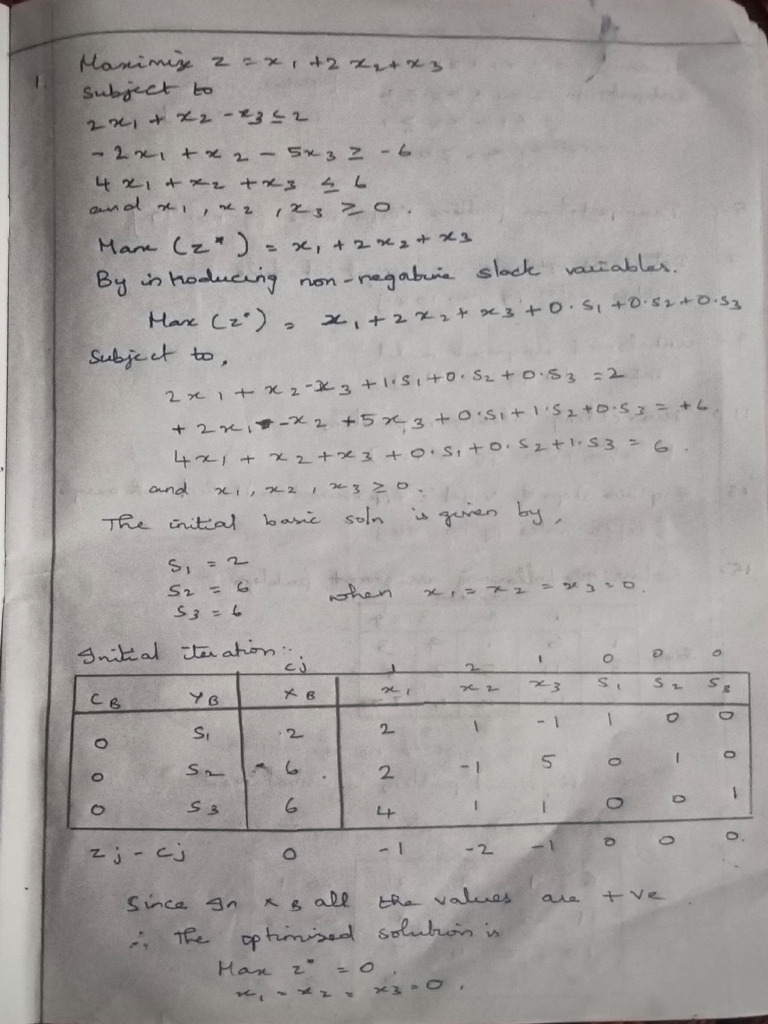 1.
Maximize z = x1 + 2x2 + x3
Subject to
2x1 + x2 - x3 ≤ 2
- 2x1 + x2 - 5x3 ≥ -6
4x1 + x2 + x3 ≤ 6
and x1, x2, x3 ≥ 0.
Max (z*) = x1 + 2x2 + x3
By introducing non-negative slack variables.
Max (z*) = x1 + 2x2 + x3 + 0.S1 + 0.S2 + 0.S3
Subject to,
2x1 + x2 - x3 + 1.S1 + 0.S2 + 0.S3 = 2
+ 2x1 - x2 + 5x3 + 0.S1 + 1.S2 + 0.S3 = +6
4x1 + x2 + x3 + 0.S1 + 0.S2 + 1.S3 = 6.
and x1, x2, x3 ≥ 0.
The initial basic soln is given by,
S1 = 2
S2 = 6 when x1 = x2 = x3 = 0.
S3 = 6
Initial iteration:-
Cj 1 2 1 0 0 0
CB YB XB x1 x2 x3 S1 S2 S3
0 S1 2 2 1 -1 1 0 0
0 S2 6 2 -1 5 0 1 0
0 S3 6 4 1 1 0 0 1
zj - cj 0 -1 -2 -1 0 0 0.
Since In XB all the values are +ve.
∴ The optimised solution is
Max z* = 0.
x1 = x2 = x3 = 0.